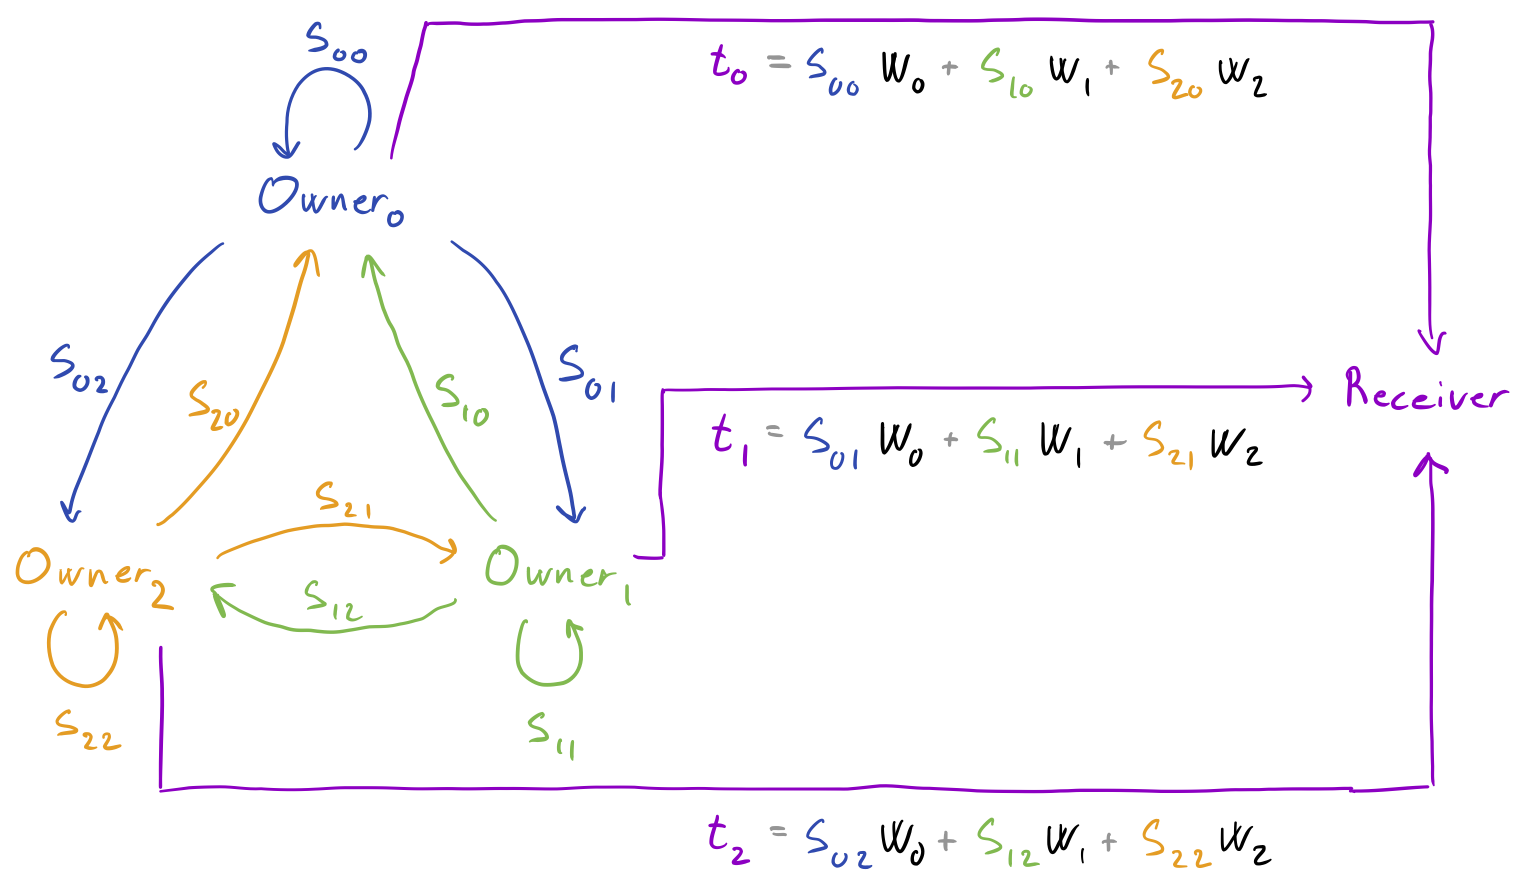 S₀₀
t₀ = S₀₀ W₀ + S₁₀ W₁ + S₂₀ W₂
Owner₀
S₀₂
S₂₀
S₁₀
S₀₁
Receiver
t₁ = S₀₁ W₀ + S₁₁ W₁ + S₂₁ W₂
S₂₁
Owner₂
Owner₁
S₁₂
S₂₂
S₁₁
t₂ = S₀₂ W₀ + S₁₂ W₁ + S₂₂ W₂